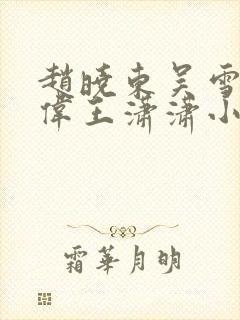 趙曉東吳雪
偉王瀟瀟小
霜華月明